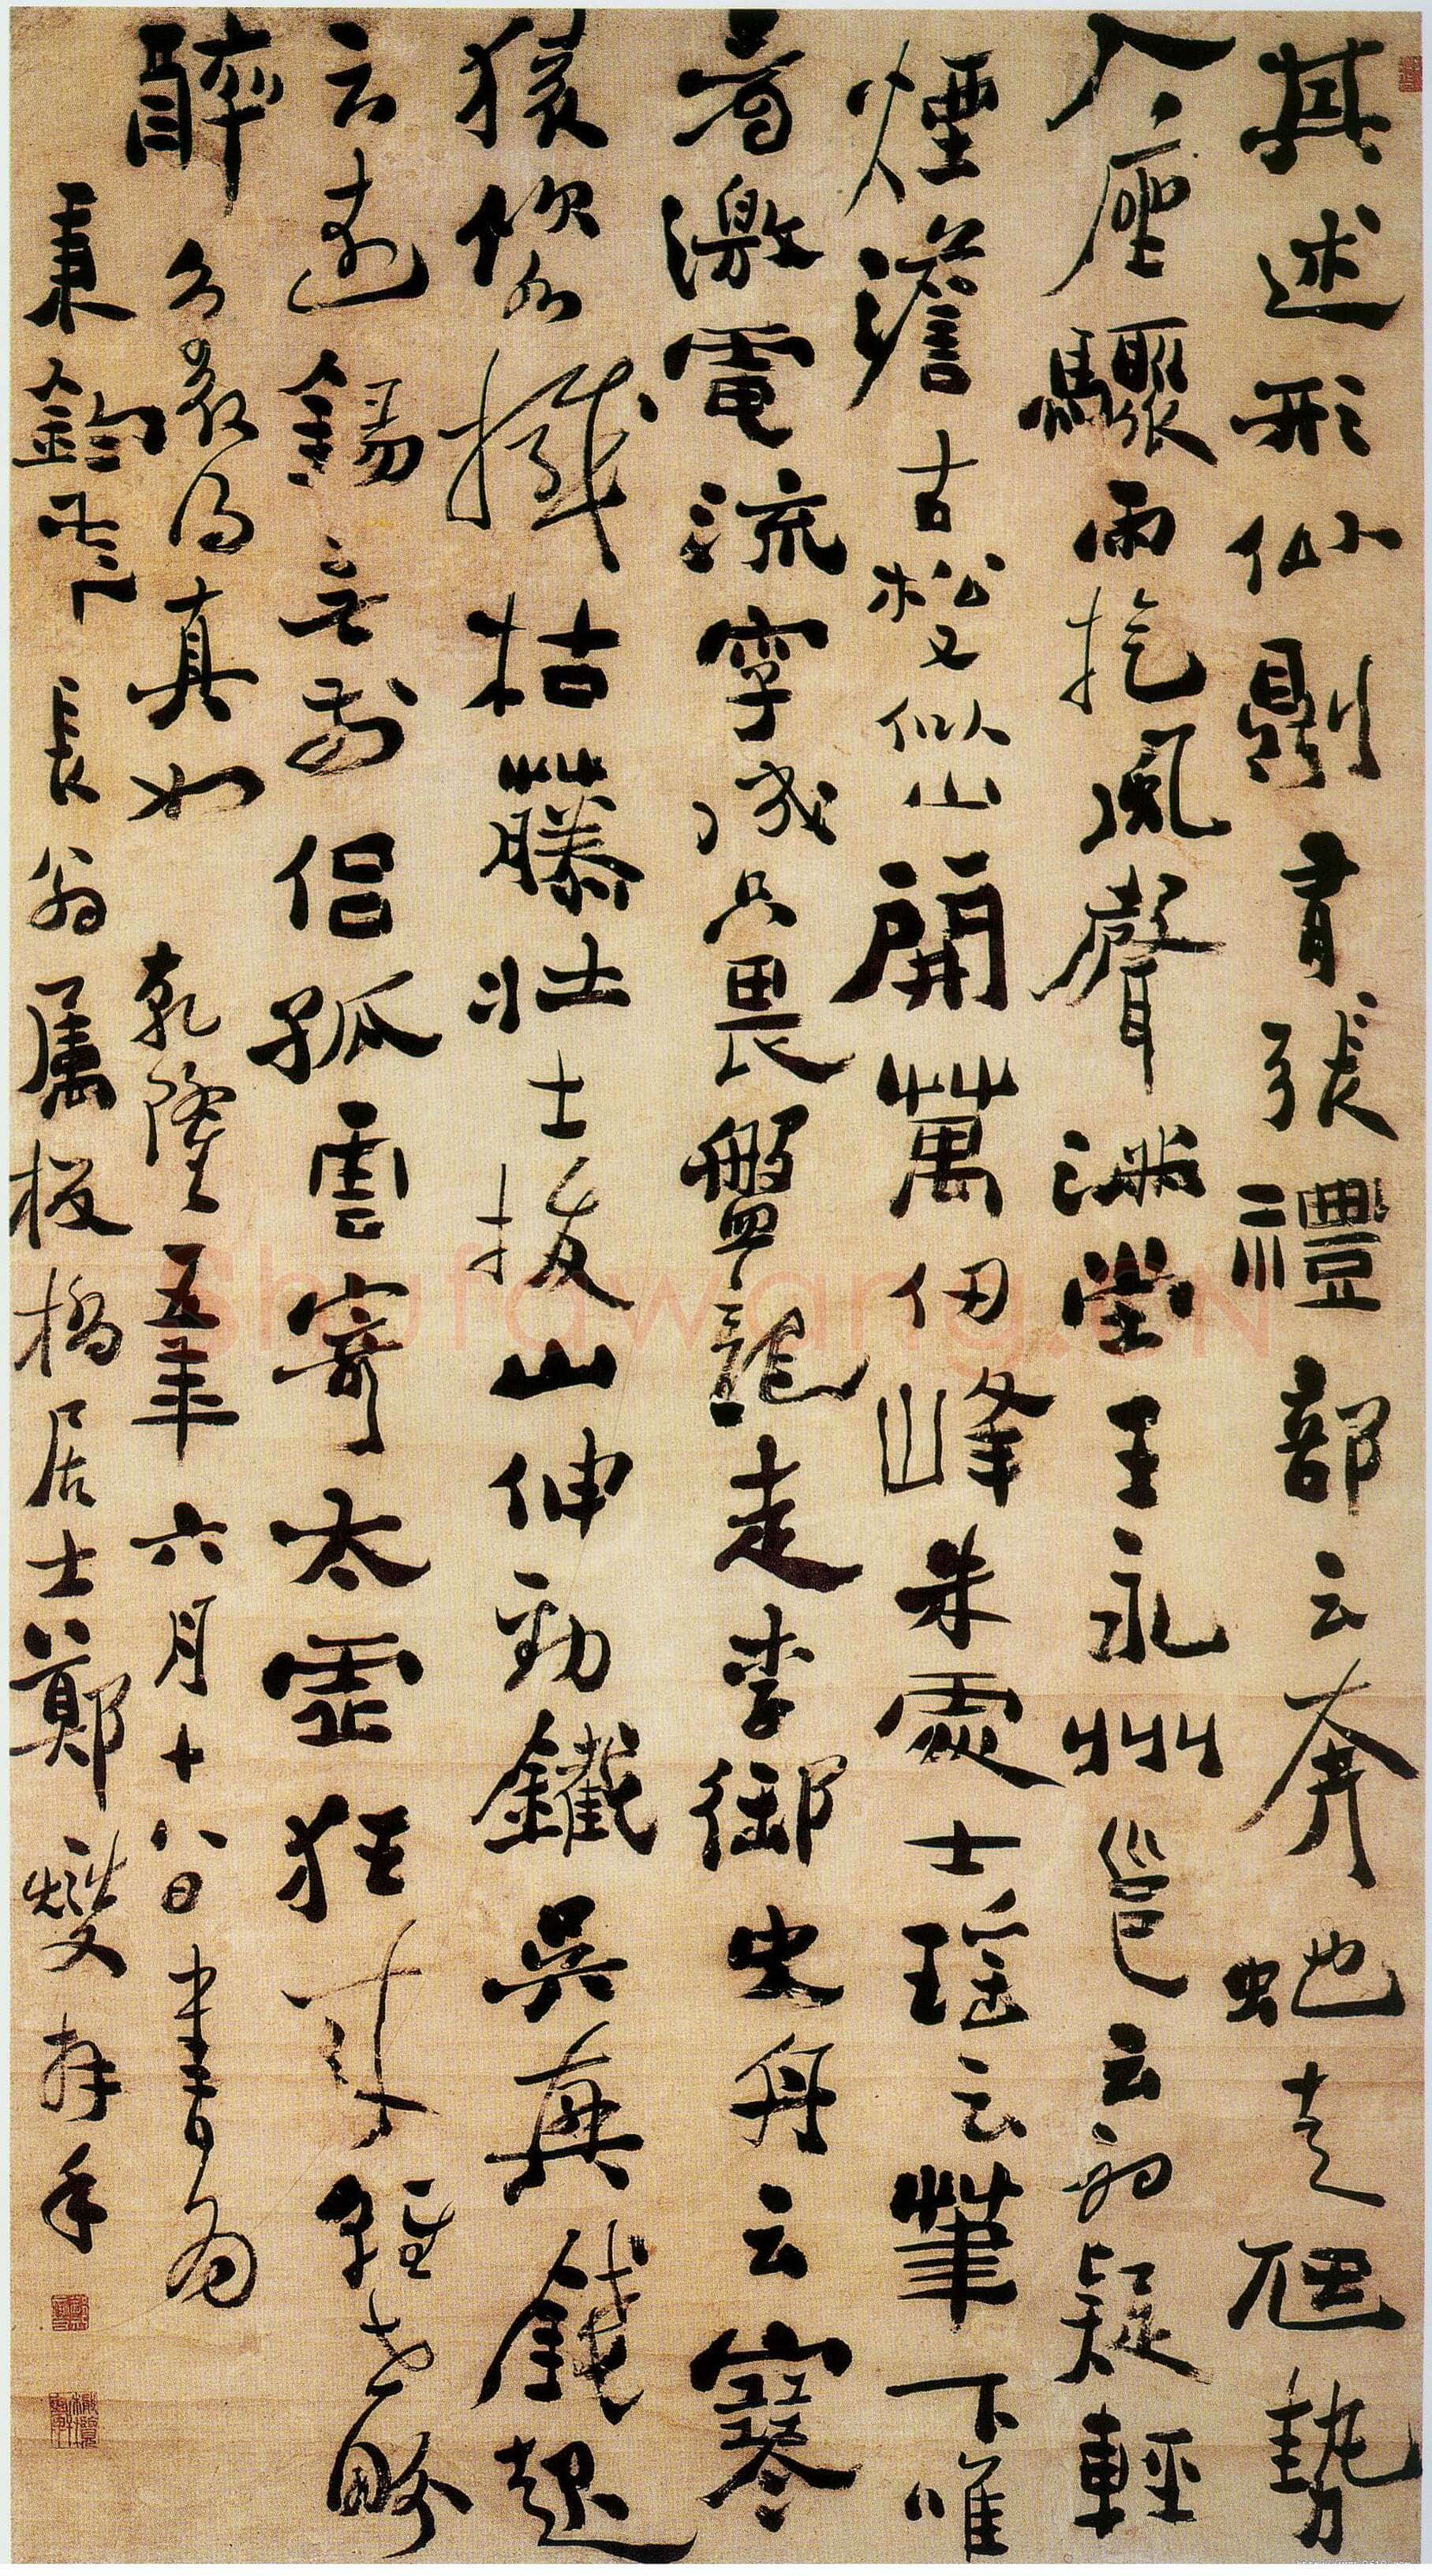 其述形似則有張澧部云奔蛇走虺勢
入座驟雨旋風聲滿堂王永州邕云初疑輕
煙澹古松又似山開萬仞峰朱處士瑶云筆下唯
看激電流字成只畏盤龍走李御史舟云寒
猿飲水撼枯藤壯士拔山伸勁鐵吳興錢起
云遠錫無前侶孤雲寄太虛狂來輕世界
醉裏得真如 乾隆五年六月十八日書為
秉鈞 長翁屬板橋居士鄭燮拜手
Shufawang.CN